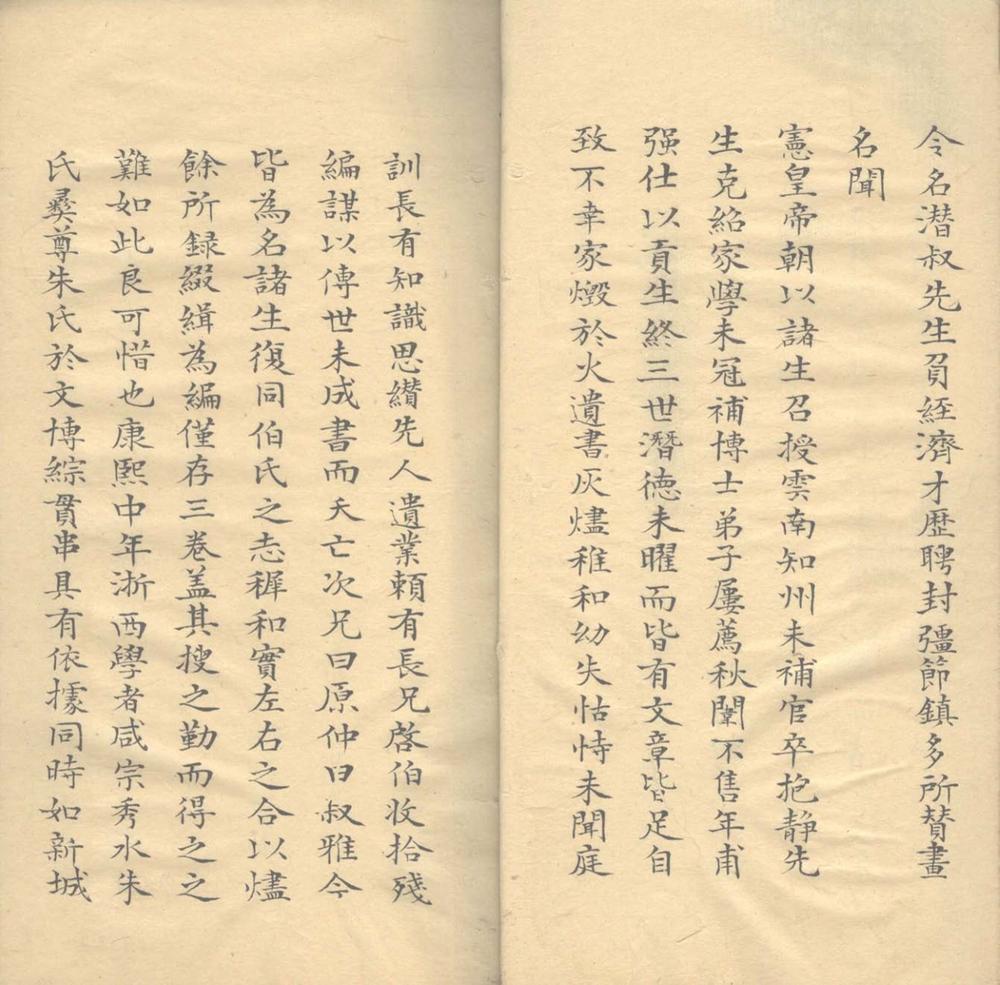 令名潛叔先生負經濟才歷聘封疆節鎮多所贊畫
名聞
憲皇帝朝以諸生召授雲南知州未補官卒抱靜先
生克紹家學未冠補博士弟子屢薦秋闈不售年甫
强仕以貢生終三世潛德未曜而皆有文章皆足自
致不幸家燬於火遺書灰燼稚和幼失怙恃未聞庭
訓長有知識思纘先人遺業賴有長兄啓伯收拾殘
編謀以傳世未成書而夭亡次兄曰原仲曰叔雅今
皆為名諸生復同伯氏之志穉和實左右之合以燼
餘所録綴緝為編僅存三卷盖其搜之勤而得之之
難如此良可惜也康熙中年浙西學者咸宗秀水朱
氏彝尊朱氏於文博綜貫串具有依據同時如新城